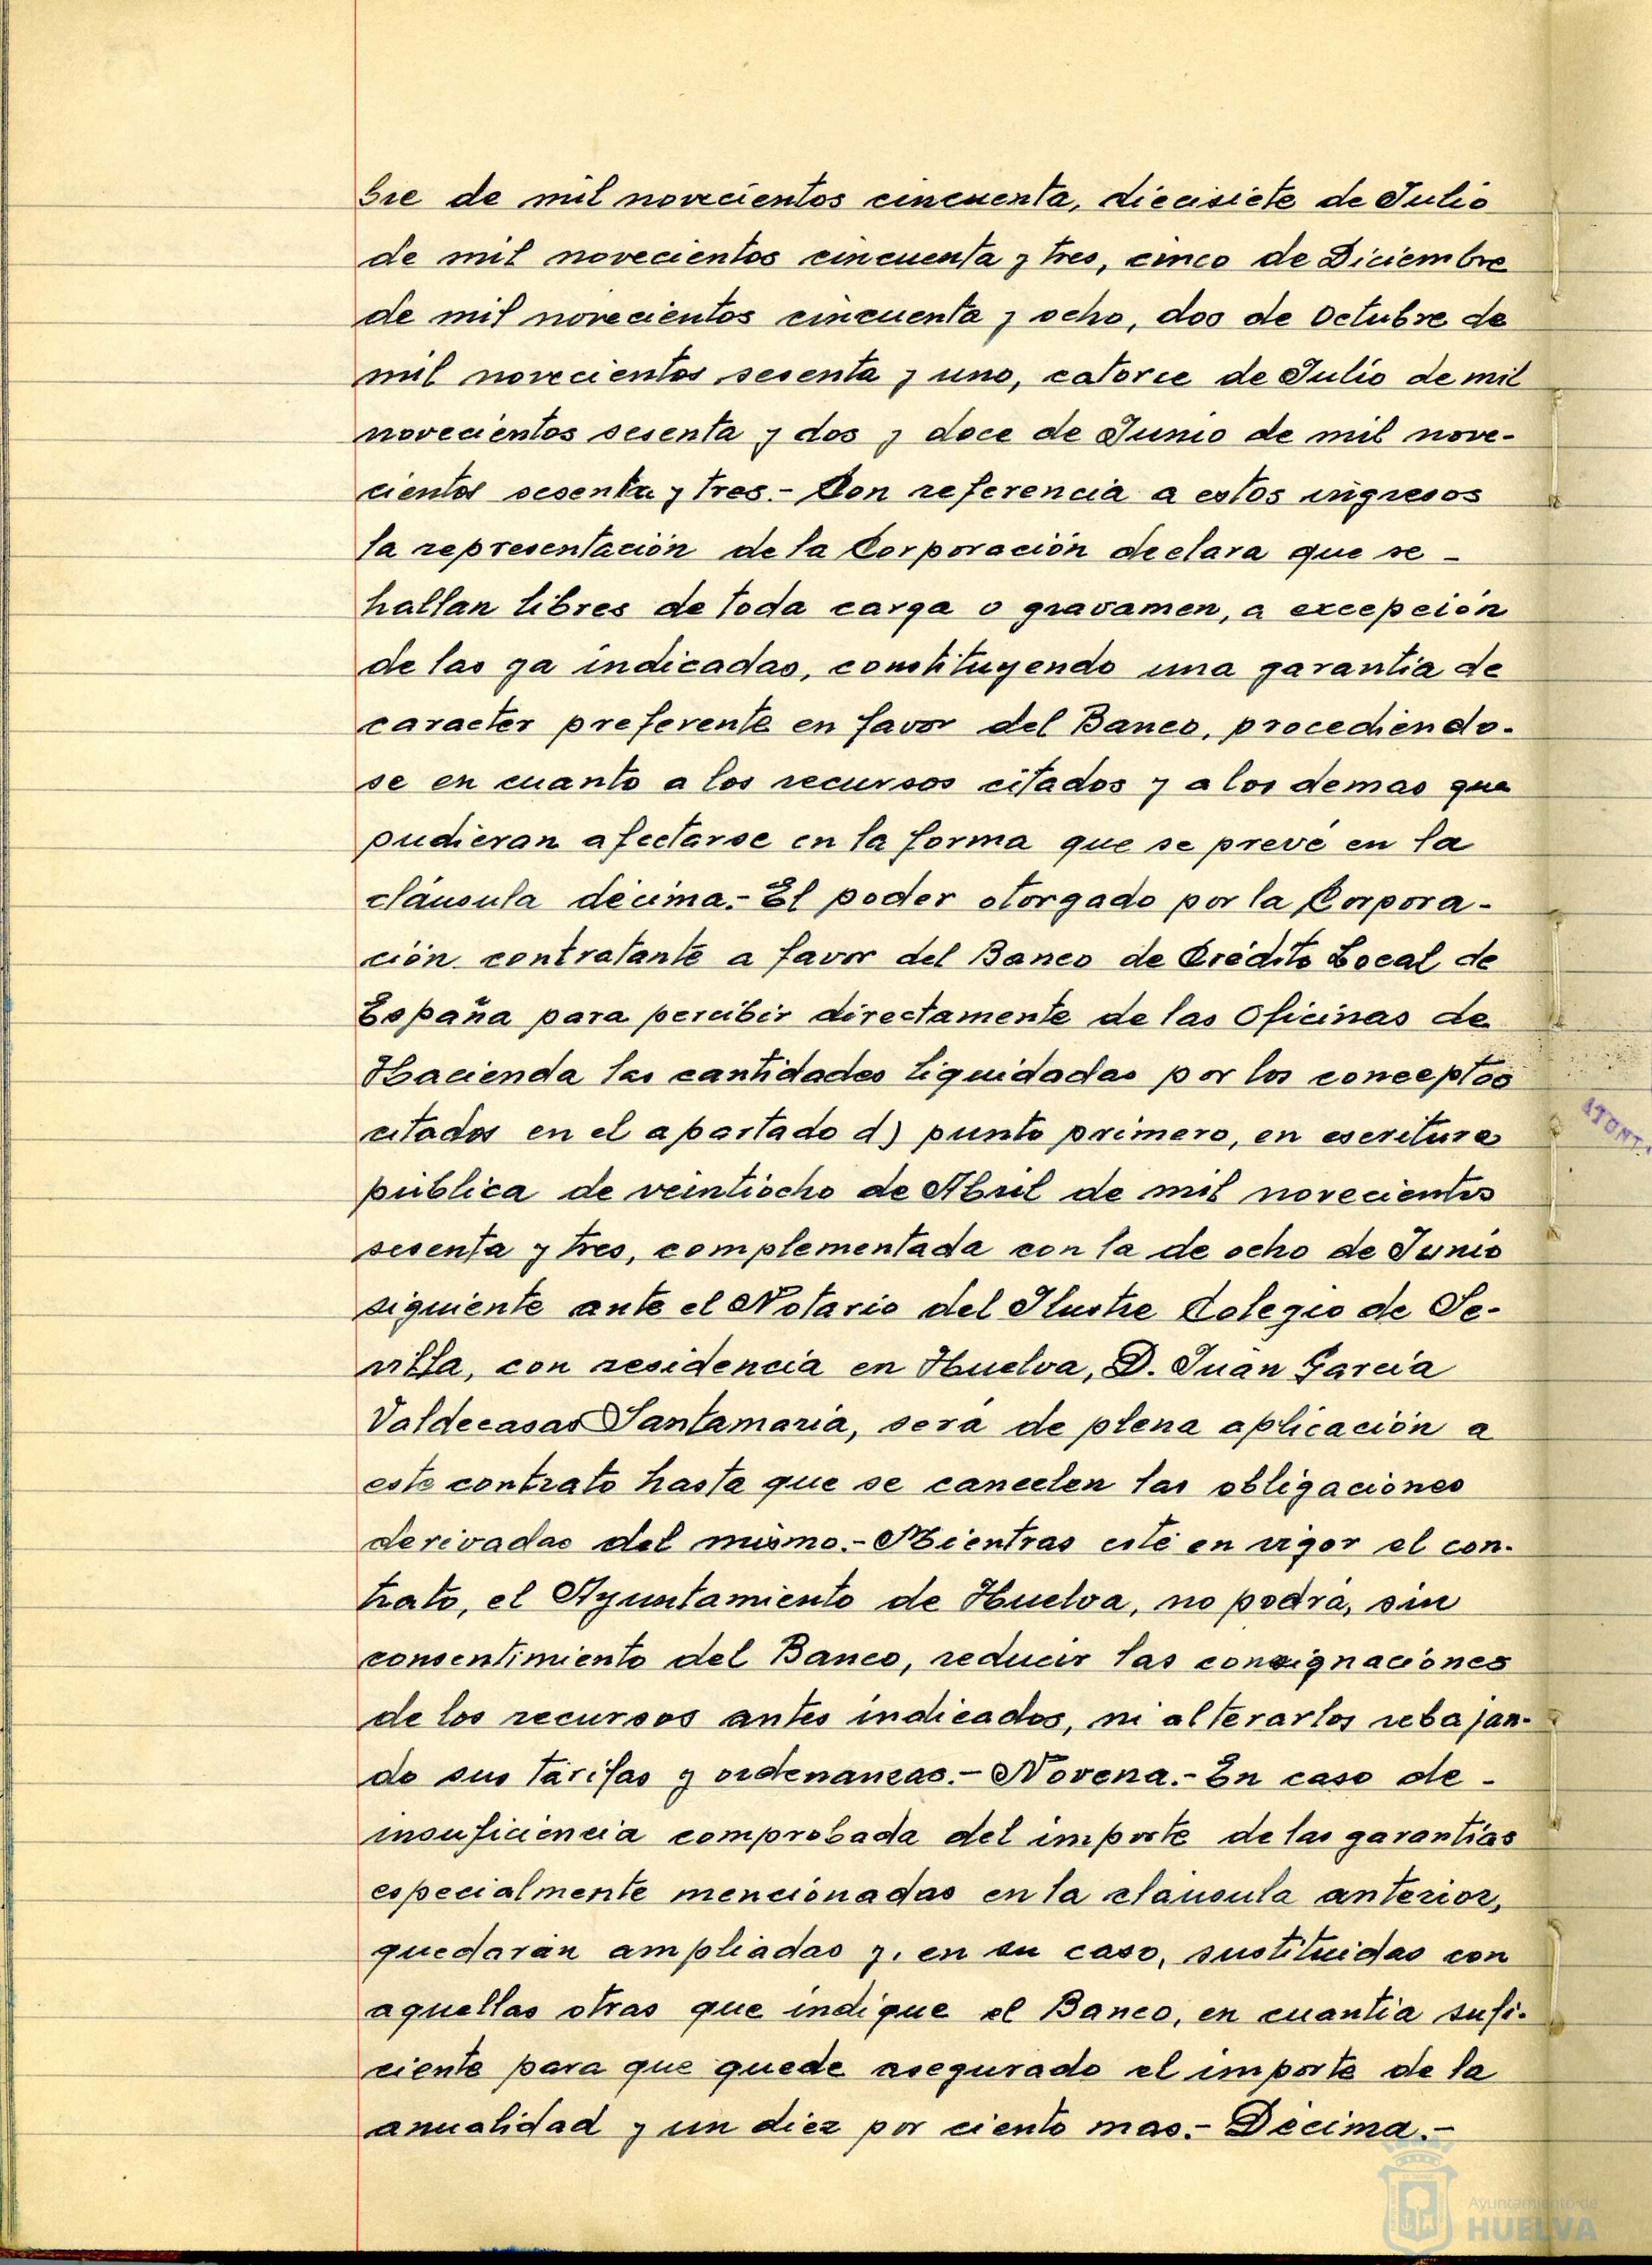 bre de mil novecientos cincuenta, diecisiete de Julio
de mil novecientos cincuenta y tres, cinco de Diciembre
de mil novecientos cincuenta y ocho, dos de Octubre de
mil novecientos sesenta y uno, catorce de Julio de mil
novecientos sesenta y dos y doce de Junio de mil nove-
cientos sesenta y tres.- Con referencia a estos ingresos
la representación de la Corporación declara que se -
hallan libres de toda carga o gravamen, a excepción
de las ya indicadas, constituyendo una garantia de
caracter preferente en favor del Banco, procediendo-
se en cuanto a los recursos citados y a los demas que
pudieran afectarse en la forma que se prevé en la
cláusula décima.- El poder otorgado por la Corpora-
ción contratante a favor del Banco de Crédito Local de
España para percibir directamente de las Oficinas de
Hacienda las cantidades liquidadas por los conceptos
citados en el apartado d) punto primero, en escritura
pública de veintiocho de Abril de mil novecientos
sesenta y tres, complementada con la de ocho de Junio
siguiente ante el Notario del Ilustre Colegio de Se-
villa, con residencia en Huelva, D. Juan García
Valdecasas Santamaria, será de plena aplicación a
este contrato hasta que se cancelen las obligaciones
derivadas del mismo.- Mientras esté en vigor el con-
trato, el Ayuntamiento de Huelva, no podrá, sin
consentimiento del Banco, reducir las consignaciones
de los recursos antes indicados, ni alterarlos rebajan-
do sus tarifas y ordenanzas.- Novena.- En caso de -
insuficiencia comprobada del importe de las garantías
especialmente mencionadas en la cláusula anterior,
quedarán ampliadas y, en su caso, sustituidas con
aquellas otras que indique el Banco, en cuantia sufi-
ciente para que quede asegurado el importe de la
anualidad y un diez por ciento mas.- Décima.-
Ayuntamiento de
HUELVA